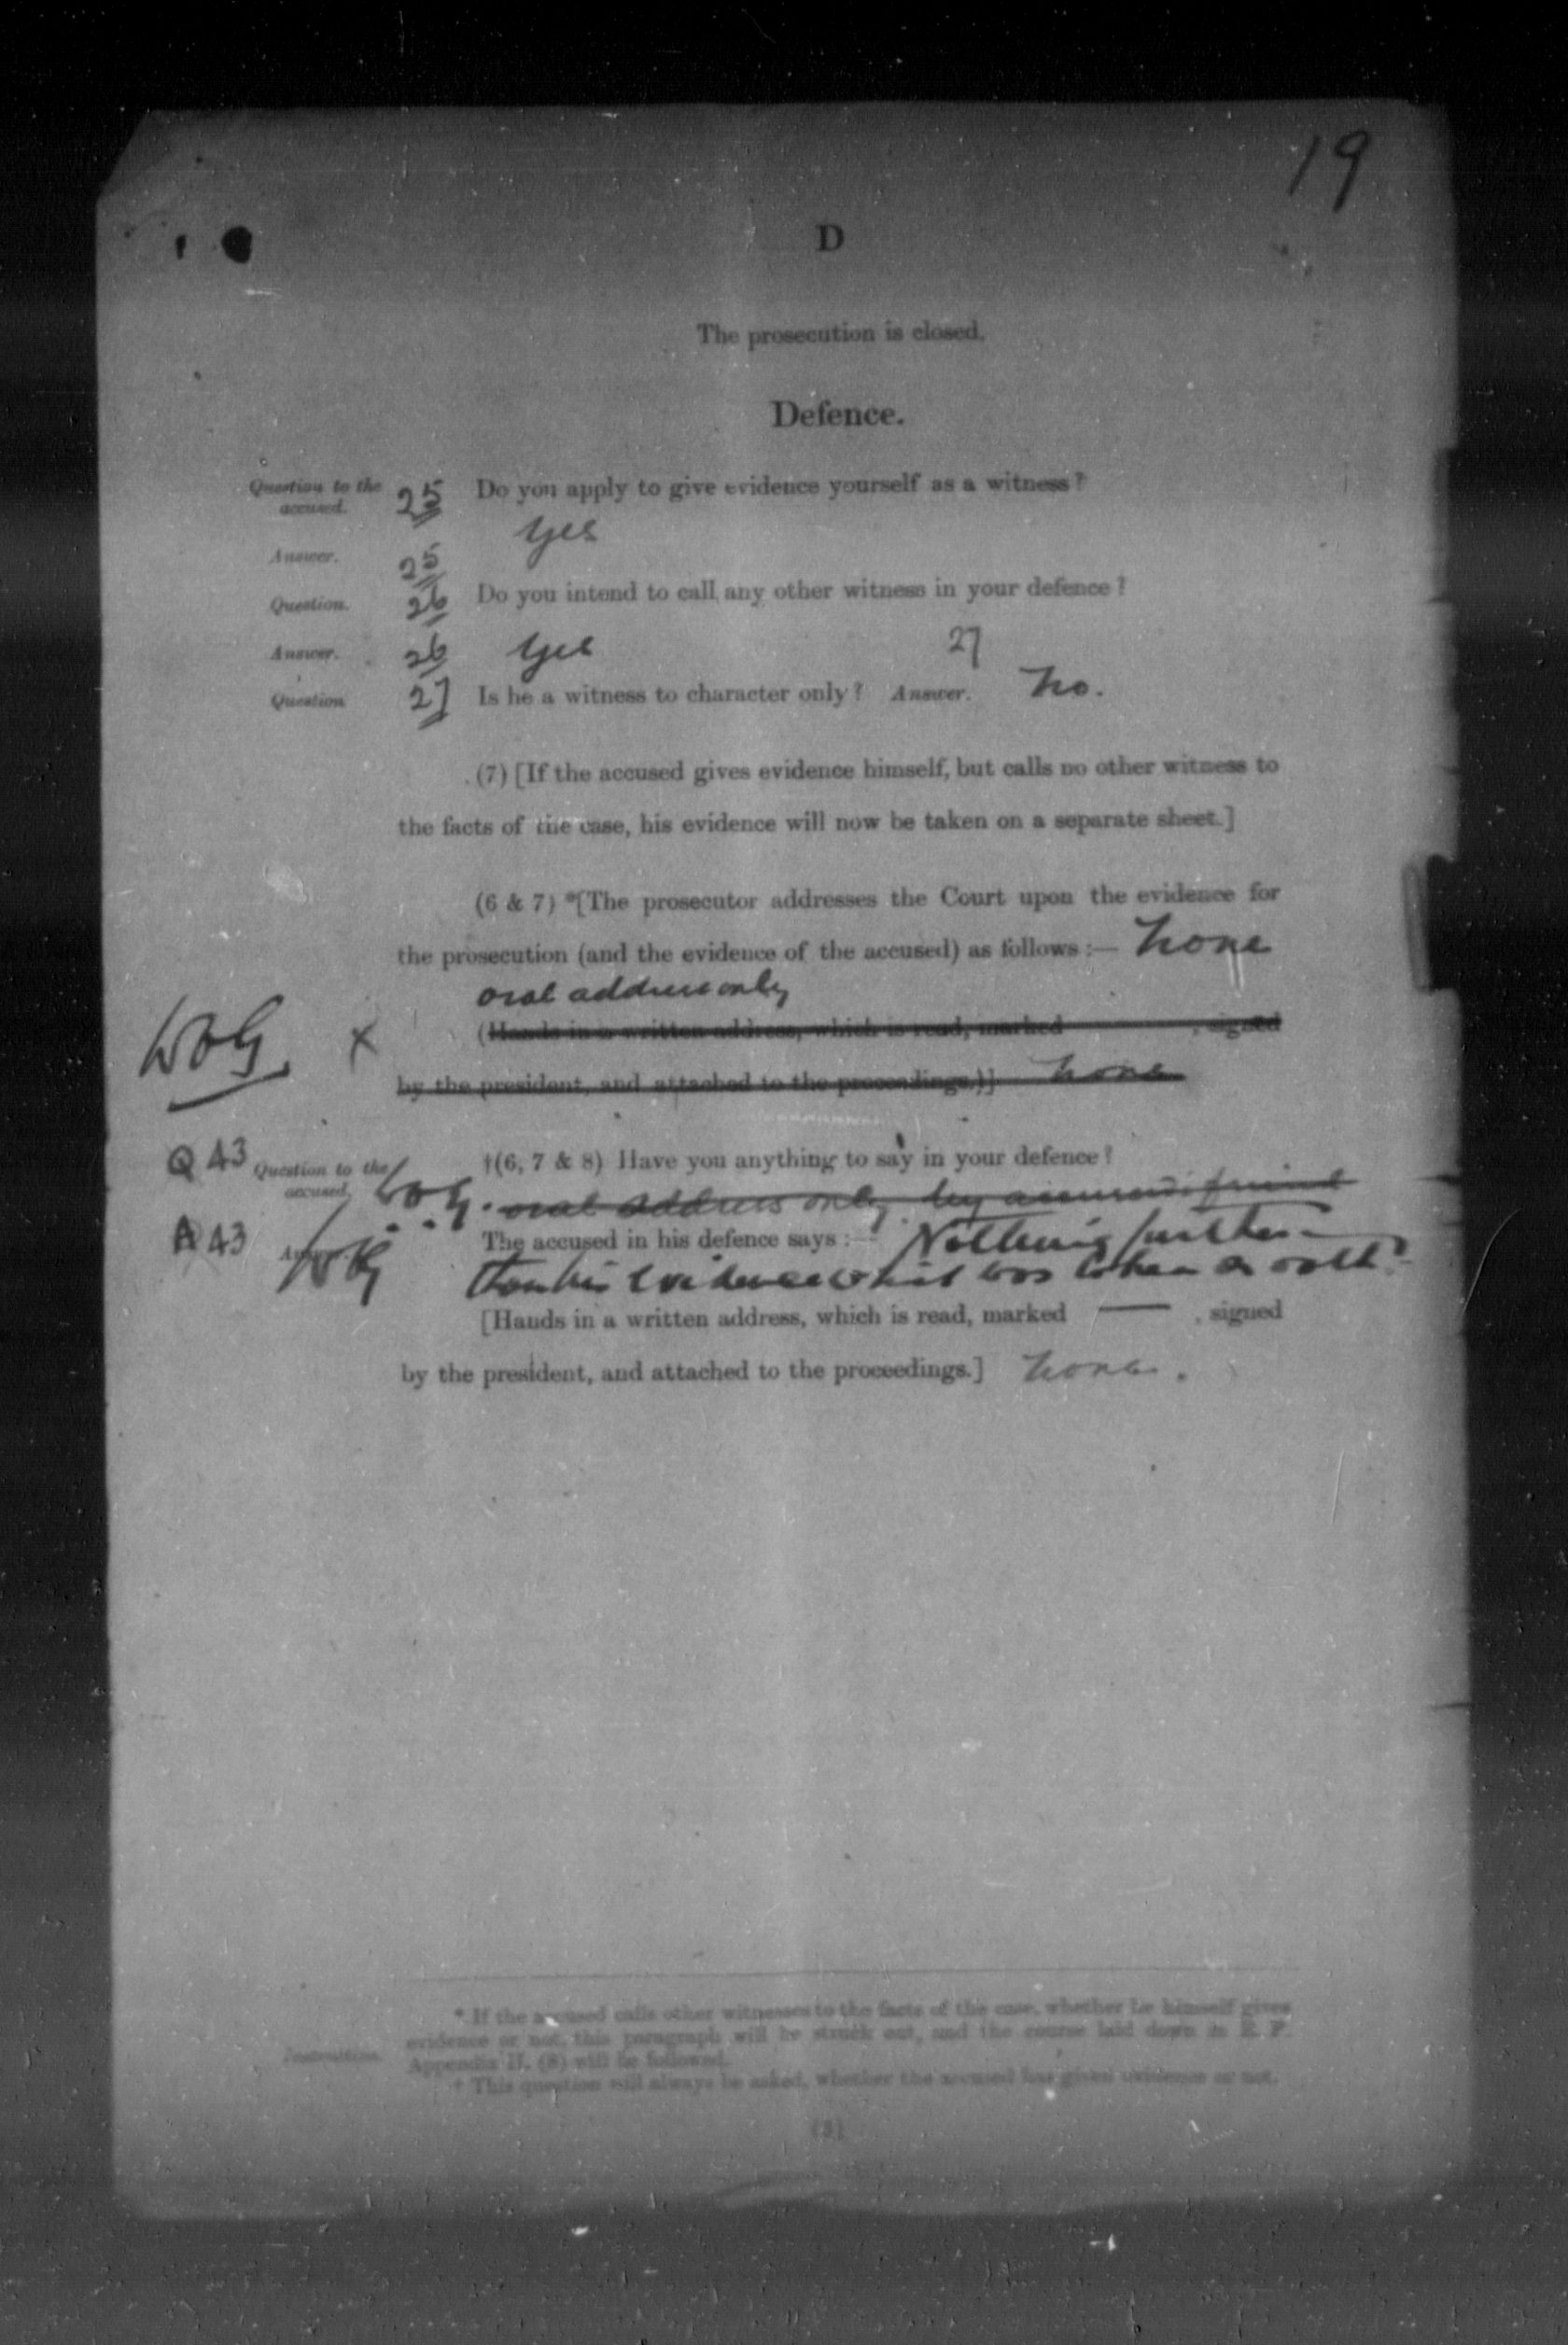 19
D
The prosecution is closed.
Defence.
Question to the accused. 25 Do you apply to give evidence yourself as a witness?
Answer. 25 Yes
Question. 26 Do you intend to call any other witness in your defence?
Answer. 26 Yes
Question 27 Is he a witness to character only? Answer. 27 No.
(7) [If the accused gives evidence himself, but calls no other witness to
the facts of the case, his evidence will now be taken on a separate sheet.]
(6 & 7) *[The prosecutor addresses the Court upon the evidence for
the prosecution (and the evidence of the accused) as follows :— none
oral address only
x (Hands in a written address, which is read, marked , signed
by the president, and attached to the proceedings.)] none
Q 43 Question to the accused. †(6, 7 & 8) Have you anything to say in your defence?
oral address only by accused's friend
A 43 Answer. The accused in his defence says :— Nothing further
than his evidence which was taken on oath
[Hands in a written address, which is read, marked — , signed
by the president, and attached to the proceedings.] none.
* If the accused calls other witnesses to the facts of the case, whether he himself gives
Instruction. evidence or not, this paragraph will be struck out, and the course laid down in R. P.
Appendix II. (8) will be followed.
† This question will always be asked, whether the accused has given evidence or not.